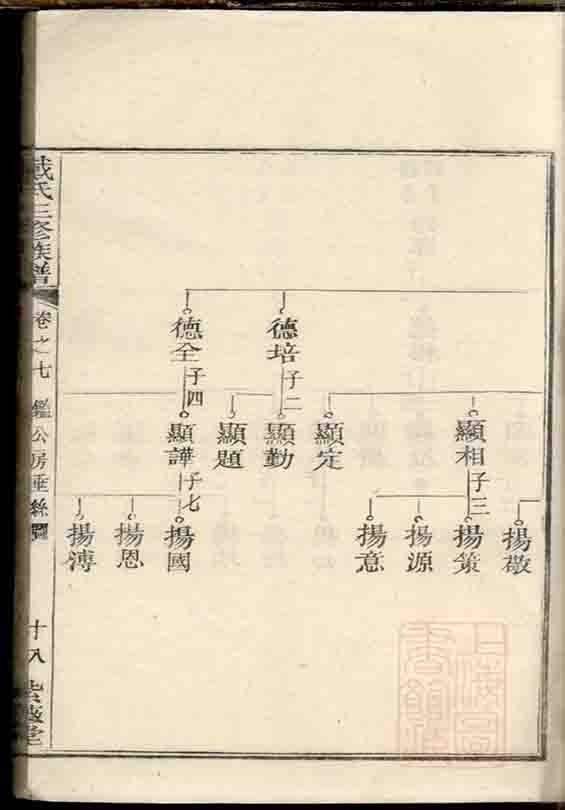 戴氏三修族譜
卷之七
鑑公房垂絲圖
十八
德培 子二
德全 子四
顯相 子三
顯定
顯勤
顯題
顯譁 子七
揚敬
揚策
揚源
揚意
揚國
揚恩
揚溥
上海圖書館藏